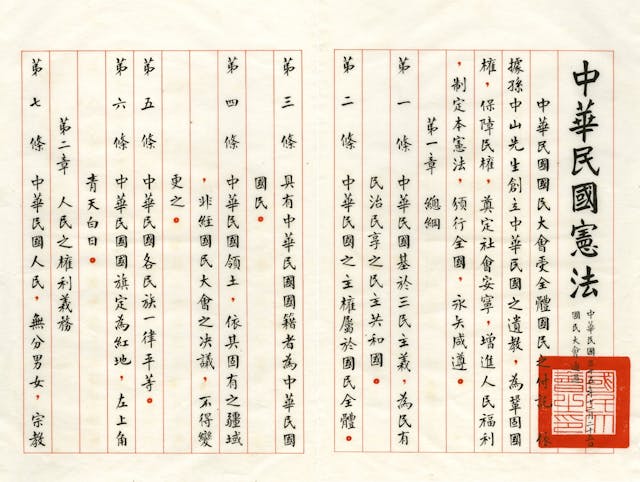 中華民國憲法
中華民國
國民大會通過
中華民國國民大會受全體國民之付託,依
據孫中山先生創立中華民國之遺教,為鞏固國
權,保障民權,奠定社會安寧,增進人民福利
,制定本憲法,頒行全國,永矢咸遵。
第一章 總綱
第一條 中華民國基於三民主義,為民有
民治民享之民主共和國。
第二條 中華民國之主權屬於國民全體。
第三條 具有中華民國國籍者為中華民國
國民。
第四條 中華民國領土,依其固有之疆域
,非經國民大會之決議,不得變
更之。
第五條 中華民國各民族一律平等。
第六條 中華民國國旗定為紅地,左上角
青天白日。
第二章 人民之權利義務
第七條 中華民國人民,無分男女,宗教